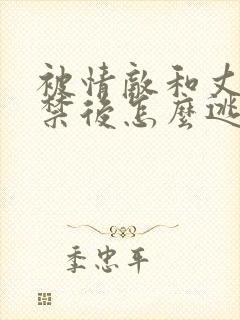 被情敵和丈
禁後怎麼逃
季忠平